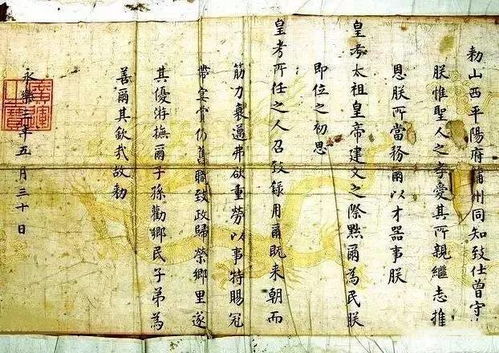 勑山西平陽府蒲州同知致仕曾守
朕惟聖人之孝愛其所親繼志推
恩朕所當務爾以才器事朕
皇考太祖皇帝建文之際黜爾為民朕
即位之初思
皇考所任之人召致錄用爾既来朝而
筋力衰邁弗欲重勞以事特賜冠
帶宴賞仍舊職致政歸榮鄉里遂
其優游撫爾子孫勸鄉民子弟為
善爾其欽哉故勑
永樂二年五月三十日